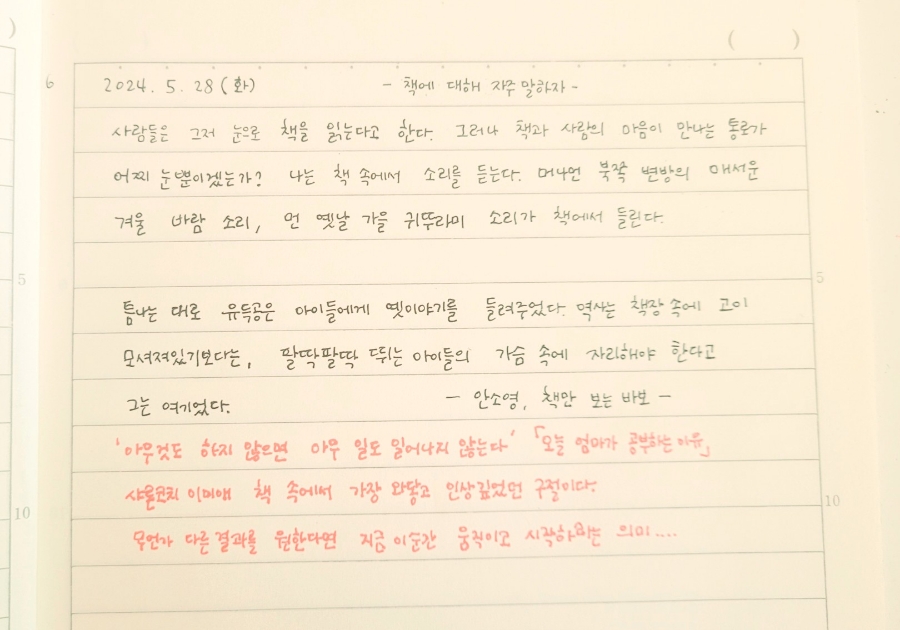 6 2024. 5. 28 (화) - 책에 대해 자주 말하자 -
사람들은 그저 눈으로 책을 읽는다고 한다. 그러나 책과 사람의 마음이 만나는 통로가
어찌 눈뿐이겠는가? 나는 책 속에서 소리를 듣는다. 머나먼 북쪽 변방의 매서운
겨울 바람 소리, 먼 옛날 가을 귀뚜라미 소리가 책에서 들린다.
5 5
틈나는 대로 유득공은 아이들에게 옛이야기를 들려주었다. 역사는 책장 속에 고이
모셔져있기보다는, 팔딱팔딱 뛰는 아이들의 가슴 속에 자리해야 한다고
그는 여기었다. - 안소영, 책만 보는 바보 -
'아무것도 하지 않으면 아무 일도 일어나지 않는다' 「오늘 엄마가 공부하는 이유」
이미애 책 속에서 가장 와닿고 인상깊었던 구절이다.
10 10
무언가 다른 결과를 원한다면 지금 이순간 움직이고 시작하라는 의미....